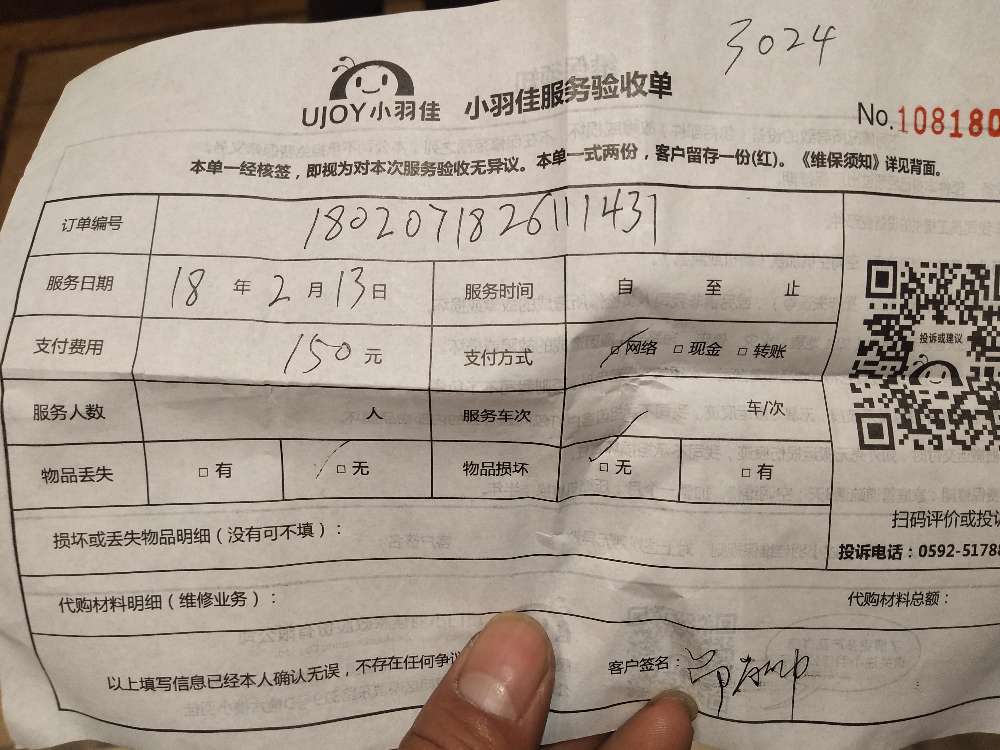 3024
UJOY小羽佳 小羽佳服务验收单
No.108180
本单一经核签，即视为对本次服务验收无异议。本单一式两份，客户留存一份(红)。《维保须知》详见背面。
订单编号 1802071826111431
服务日期 18 年 2 月 13 日 服务时间 自 至 止
支付费用 150 元 支付方式 □网络 □现金 □转账
投诉或建议
服务人数 人 服务车次 车/次
物品丢失 □有 □无 物品损坏 □无 □有
扫码评价或投诉
损坏或丢失物品明细（没有可不填）：
投诉电话：0592-5178
代购材料明细（维修业务）： 代购材料总额：
以上填写信息已经本人确认无误，不存在任何争议 客户签名：